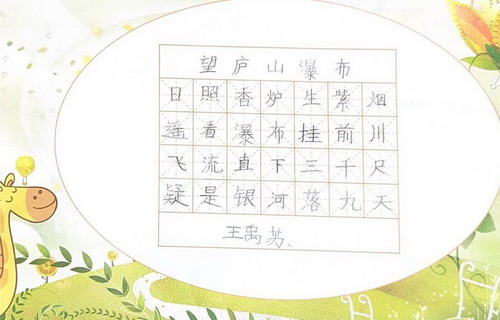 望庐山瀑布
日照香炉生紫烟
遥看瀑布挂前川
飞流直下三千尺
疑是银河落九天
王禹苏、